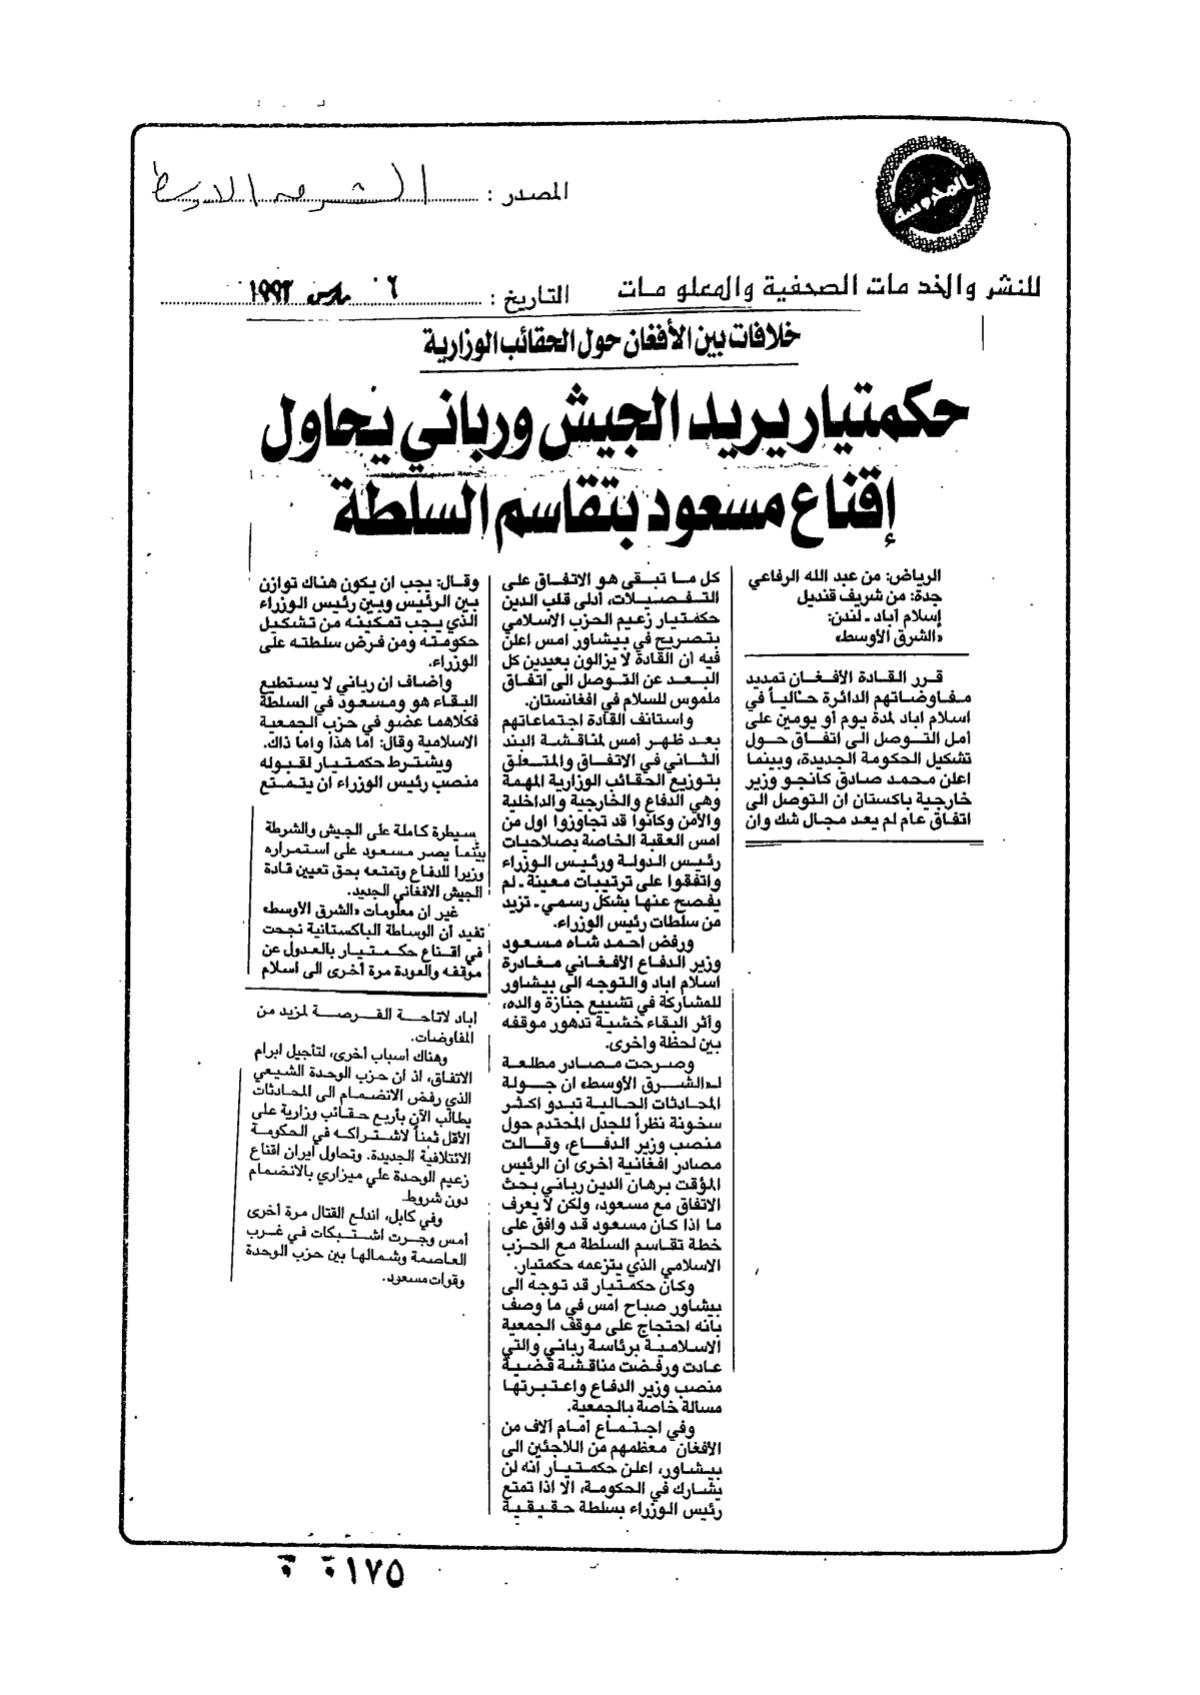 المدوسه
المصدر : الشرق الاوسط
للنشر والخدمات الصحفية والمعلومات
التاريخ : ٦ مارس ١٩٩٣
خلافات بين الأفغان حول الحقائب الوزارية
حكمتيار يريد الجيش ورباني يحاول
إقناع مسعود بتقاسم السلطة
الرياض: من عبد الله الرفاعي
جدة: من شريف قنديل
إسلام آباد ـ لندن:
«الشرق الأوسط»
قرر القادة الأفغان تمديد
مفاوضاتهم الدائرة حالياً في
اسلام اباد لمدة يوم أو يومين على
أمل التوصل الى اتفاق حول
تشكيل الحكومة الجديدة، وبينما
اعلن محمد صادق كانجو وزير
خارجية باكستان ان التوصل الى
اتفاق عام لم يعد مجال شك وان
كل ما تبقى هو الاتفاق على
التفصيلات، أدلى قلب الدين
حكمتيار زعيم الحزب الاسلامي
بتصريح في بيشاور امس اعلن
فيه أن القادة لا يزالون بعيدين كل
البعد عن التوصل الى اتفاق
ملموس للسلام في افغانستان.
واستانف القادة اجتماعاتهم
بعد ظهر أمس لمناقشة البند
الثاني في الاتفاق والمتعلق
بتوزيع الحقائب الوزارية المهمة
وهي الدفاع والخارجية والداخلية
والأمن وكانوا قد تجاوزوا اول من
امس العقبة الخاصة بصلاحيات
رئيس الدولة ورئيس الوزراء
واتفقوا على ترتيبات معينة ـ لم
يفصح عنها بشكل رسمي ـ تزيد
من سلطات رئيس الوزراء.
ورفض احمد شاه مسعود
وزير الدفاع الافغاني مغادرة
اسلام اباد والتوجه الى بيشاور
للمشاركة في تشييع جنازة والده،
وأثر البقاء خشية تدهور موقفه
بين لحظة واخرى.
وصرحت مصادر مطلعة
لـ«الشرق الأوسط» ان جولة
المحادثات الحالية تبدو اكثر
سخونة نظراً للجدل المحتدم حول
منصب وزير الدفاع، وقالت
مصادر افغانية أخرى ان الرئيس
المؤقت برهان الدين رباني بحث
الاتفاق مع مسعود، ولكن لا يعرف
ما اذا كان مسعود قد وافق على
خطة تقاسم السلطة مع الحزب
الاسلامي الذي يتزعمه حكمتيار.
وكان حكمتيار قد توجه الى
بيشاور صباح امس في ما وصف
بأنه احتجاج على موقف الجمعية
الاسلامية برئاسة رباني والتي
عادت ورفضت مناقشة قضية
منصب وزير الدفاع واعتبرتها
مسالة خاصة بالجمعية.
وفي اجتماع أمام آلاف من
الأفغان معظمهم من اللاجئين الى
بيشاور، اعلن حكمتيار انه لن
يشارك في الحكومة، الا اذا تمتع
رئيس الوزراء بسلطة حقيقية
وقال: يجب ان يكون هناك توازن
بين الرئيس وبين رئيس الوزراء
الذي يجب تمكينه من تشكيل
حكومته ومن فرض سلطته على
الوزراء.
واضاف ان رباني لا يستطيع
البقاء هو ومسعود في السلطة
فكلاهما عضو في حزب الجمعية
الاسلامية وقال: اما هذا واما ذاك.
ويشترط حكمتيار لقبوله
منصب رئيس الوزراء ان يتمتع
سيطرة كاملة على الجيش والشرطة
بينما يصر مسعود على استمراره
وزيرا للدفاع وتمتعه بحق تعيين قادة
الجيش الافغاني الجديد.
غير ان معلومات «الشرق الأوسط»
تفيد أن الوساطة الباكستانية نجحت
في اقناع حكمتيار بالعدول عن
موقفه والعودة مرة أخرى الى اسلام
اباد لاتاحة الفرصة لمزيد من
المفاوضات.
وهناك أسباب أخرى، لتأجيل ابرام
الاتفاق، اذ ان حزب الوحدة الشيعي
الذي رفض الانضمام الى المحادثات
يطالب الآن بأربع حقائب وزارية على
الأقل ثمناً لاشتراكه في الحكومة
الائتلافية الجديدة. وتحاول ايران اقناع
زعيم الوحدة علي ميزاري بالانضمام
دون شروط.
وفي كابل، اندلع القتال مرة أخرى
أمس وجرت اشتبكات في غرب
العاصمة وشمالها بين حزب الوحدة
وقوات مسعود.
١٧٥